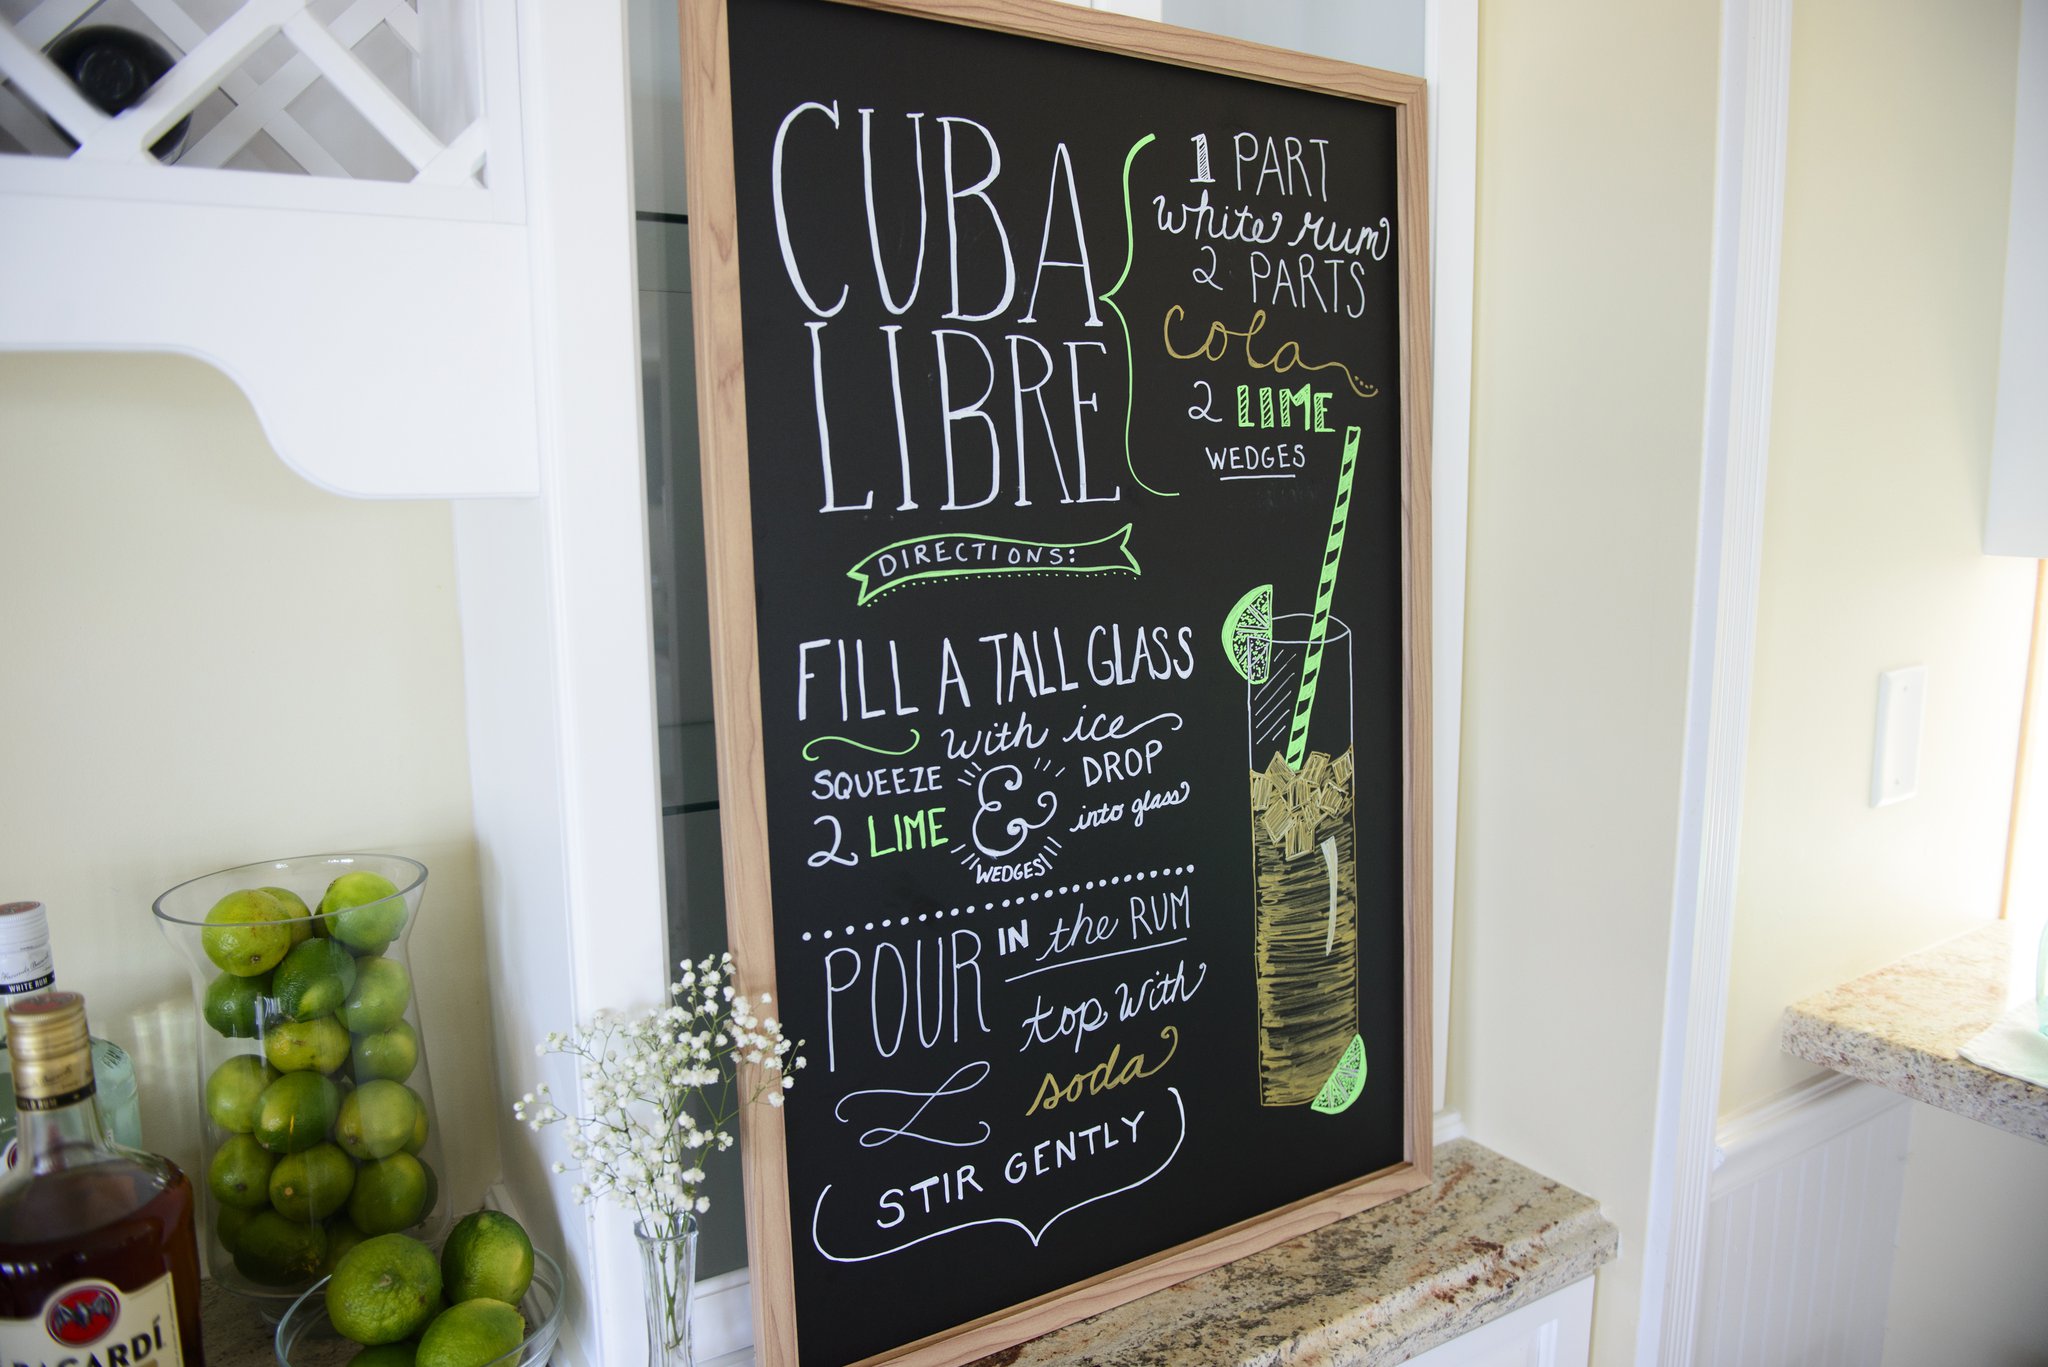 CUBA
LIBRE
1 PART
white rum
2 PARTS
cola
2 LIME
WEDGES
DIRECTIONS:
FILL A TALL GLASS
with ice
SQUEEZE
2 LIME
&
WEDGES
DROP
into glass
POUR IN the RUM
top with
soda
STIR GENTLY
WHITE RUM
BACARDÍ